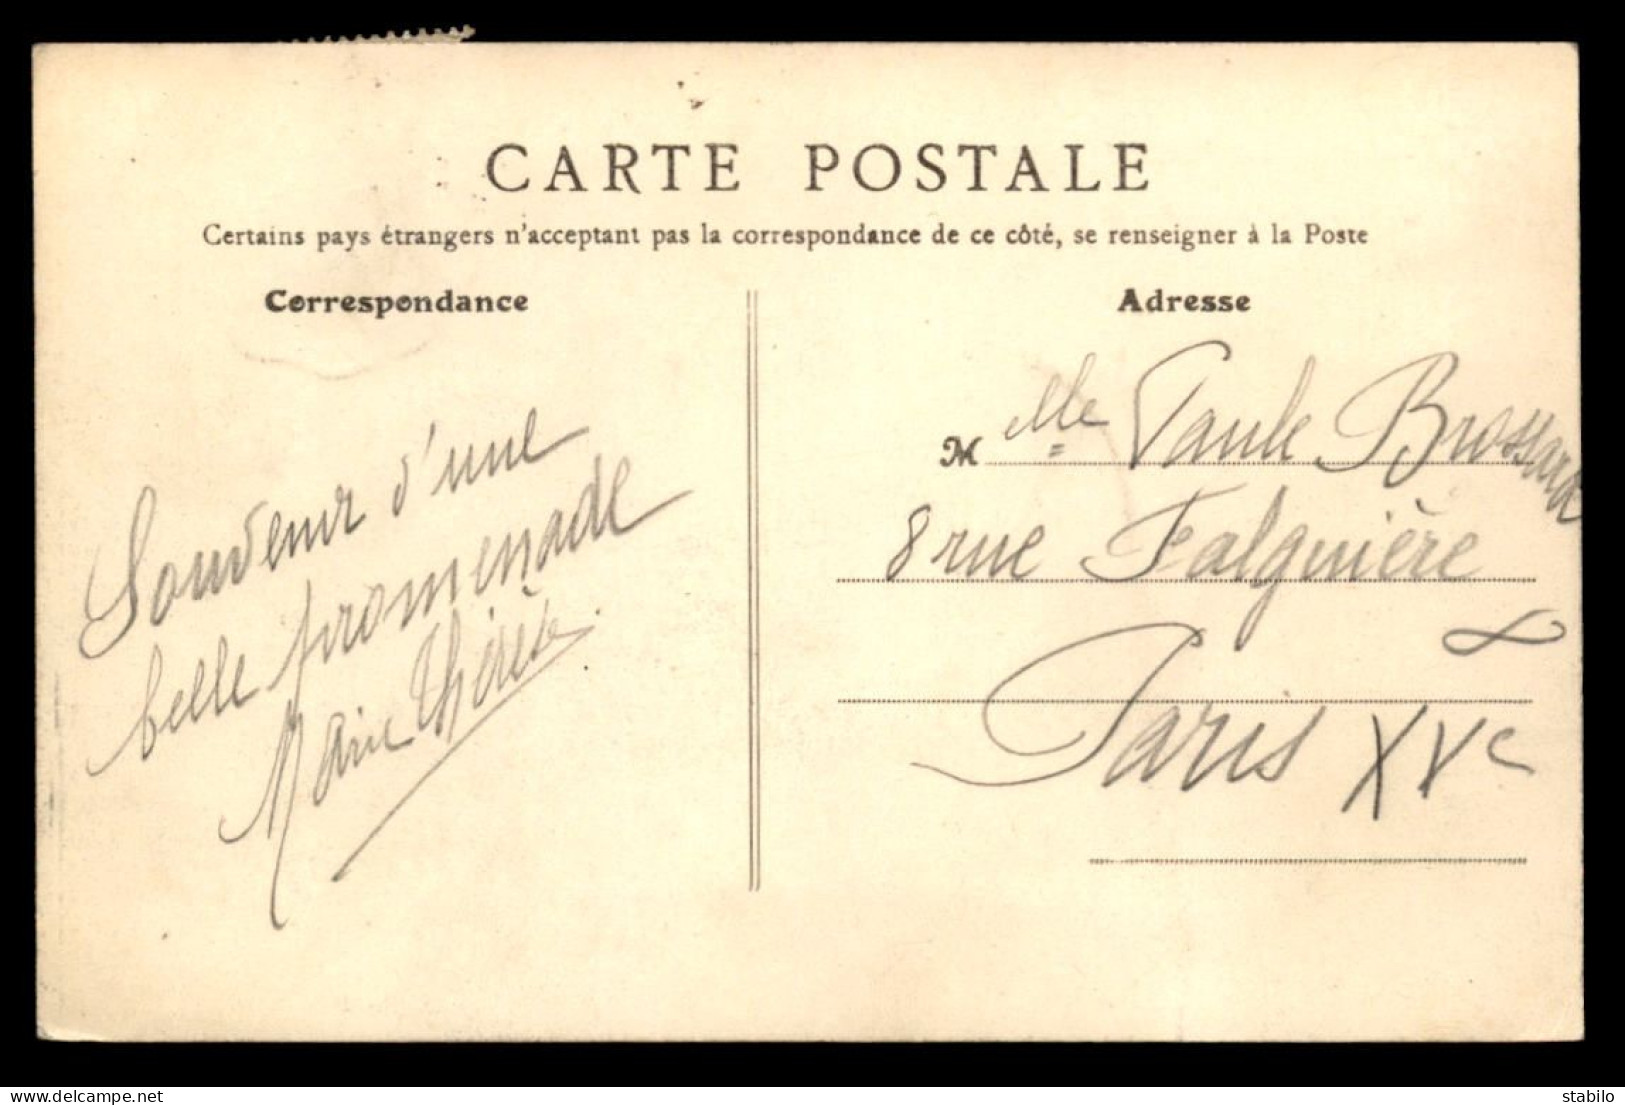 CARTE POSTALE
Certains pays étrangers n'acceptant pas la correspondance de ce côté, se renseigner à la Poste
Correspondance
Souvenir d'une
belle promenade
Marie Thérèse
Adresse
M Mlle Paule Brossard
8 rue Falguière
Paris XVe
stabilo
delcampe.net